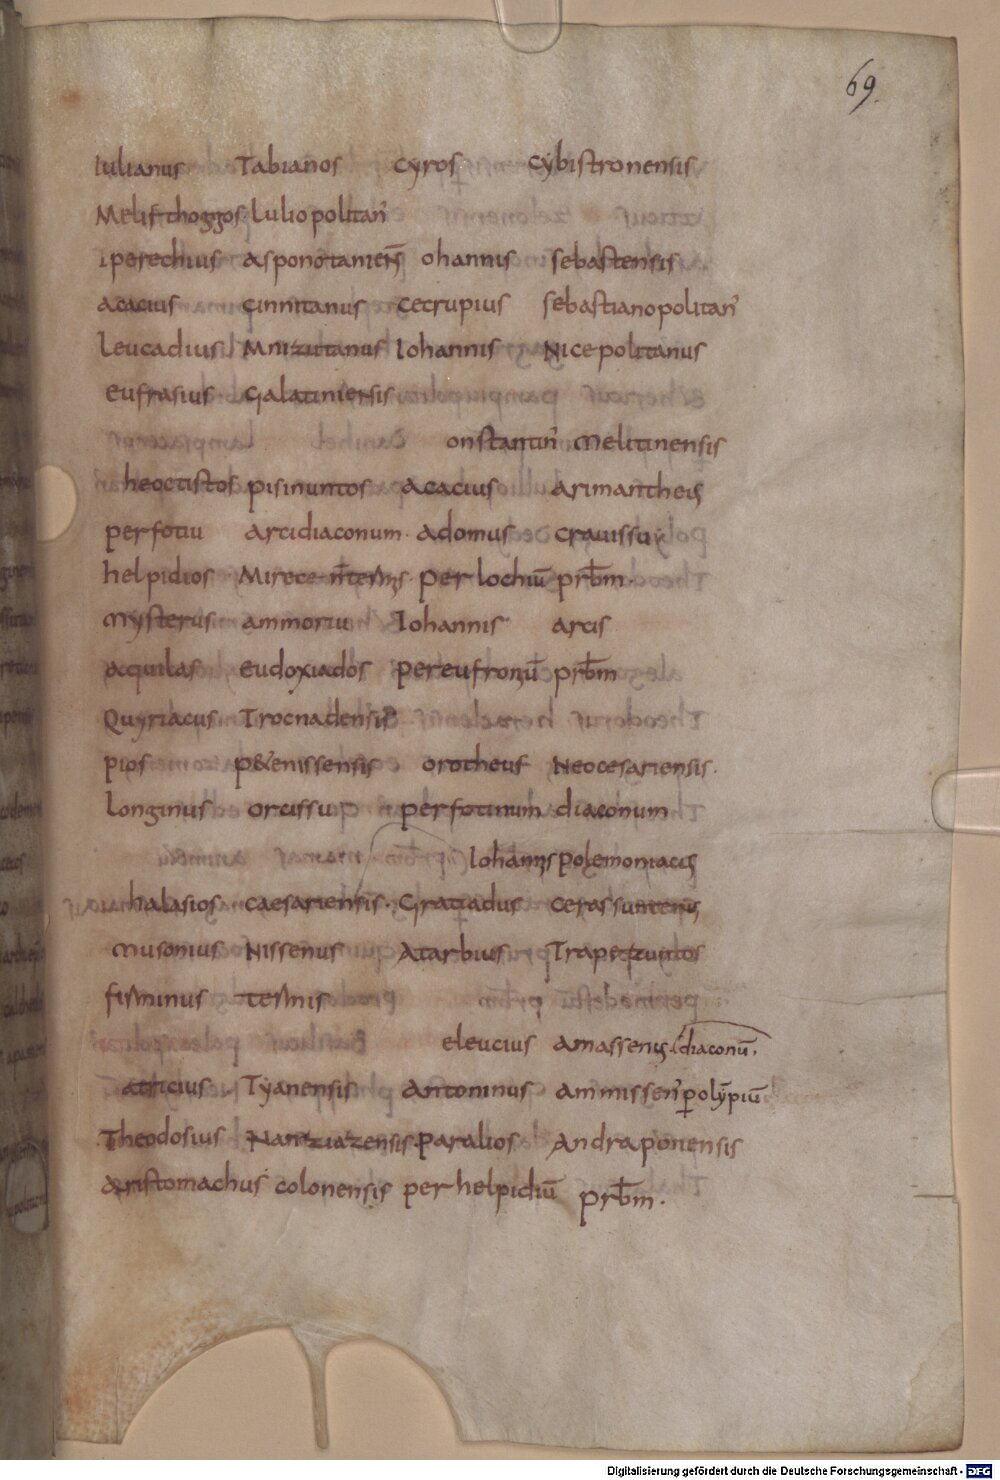 69.
Iulianus Tabianos cyros cybistronensis
Melifthoggos luliopolitan̄
iperechius asponotaniens̄ ohannis sebastensis
acacius cinnitanus cecrupius sebastianopolitan̄
leucadius Mnizutanus Iohannis Nicepolitanus
eufrasius Galatiniensis
onstantin̄ melitinensis
heoctistos pisinuntos acacius arimantheis
perfotiu arcidiaconum. adomus
helpidios per lochiū prb̄m.
mysterius ammoriu Iohannis arcis
aquilas eudoxiados pereufroniū prb̄m
Quyriacus Trocnadensis
pios p&enissensis orotheus Neocesariensis.
longinus orcissu perfotinum diaconum
Iohannis polemoniacis
halasios caesariensis. Gratiadus cerassuntenis
musonius Nissenus Atarbius
firminus
eleucius amassenis diaconū.
aticius Tyanensis antoninus ammissen̄ polȳpiū
Theodosius Nantziazensis. paralios Andraponensis
aristomachus colonensis per helpidiū prb̄m.
Digitalisierung gefördert durch die Deutsche Forschungsgemeinschaft - DFG